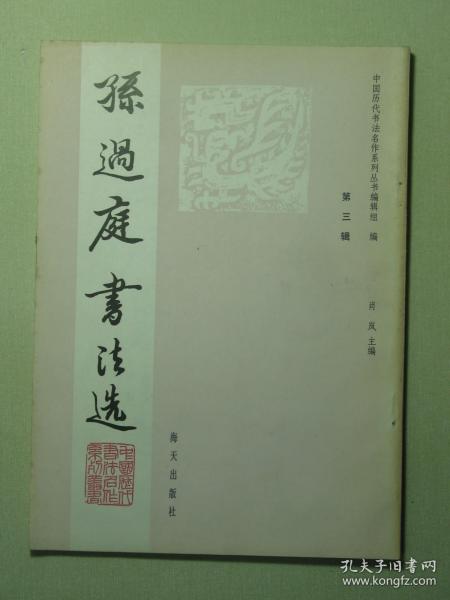 中国历代书法名作系列丛书编辑组 编
第三辑
肖岚 主编
孫過庭書法选
中國歷代
書法名作
系列叢書
海天出版社
孔夫子旧书网
www.kongfz.com